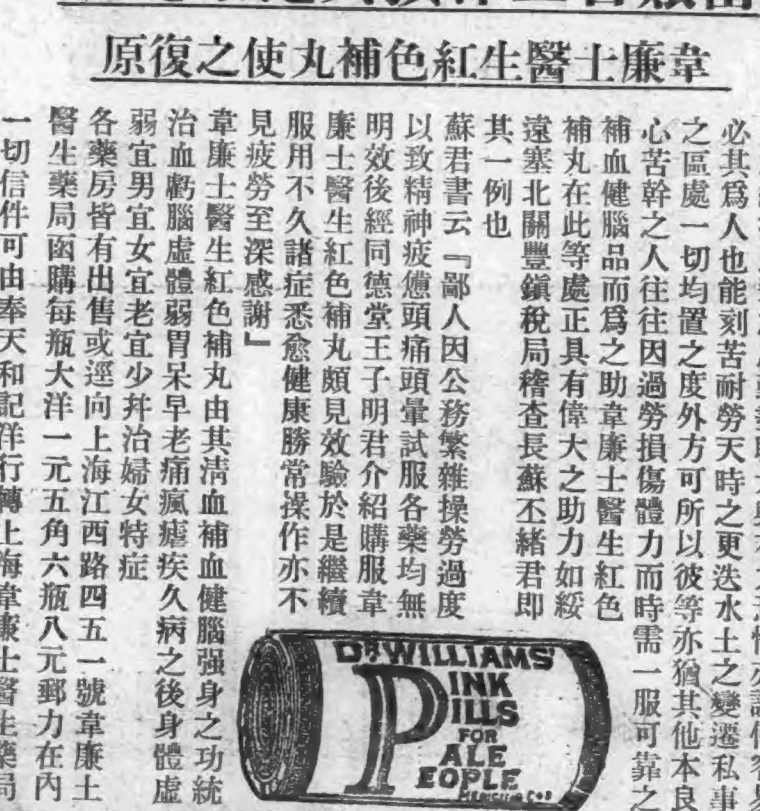 韋廉士醫生紅色補丸使之復原
必其爲人也能刻苦耐勞天時之更迭水土之變遷私事
之區處一切均置之度外方可所以彼等亦猶其他本良
心苦幹之人往往因過勞損傷體力而時需一服可靠之
補血健腦品而爲之助韋廉士醫生紅色
補丸在此等處正具有偉大之助力如綏
遠塞北關豐鎮稅局稽查長蘇丕緒君即
其一例也
蘇君書云『鄙人因公務繁雜操勞過度
以致精神疲憊頭痛頭暈試服各藥均無
明效後經同德堂王子明君介紹購服韋
廉士醫生紅色補丸頗見效驗於是繼續
服用不久諸症悉愈健康勝常操作亦不
見疲勞至深感謝』
韋廉士醫生紅色補丸由其淸血補血健腦强身之功統
治血虧腦虛體弱胃呆早老痛瘋瘧疾久病之後身體虛
弱宜男宜女宜老宜少幷治婦女特症
各藥房皆有出售或逕向上海江西路四五一號韋廉士
醫生藥局函購每瓶大洋一元五角六瓶八元郵力在內
一切信件可由奉天和記洋行轉上海韋廉士醫生藥局
DR WILLIAMS'
PINK
PILLS
FOR
PALE
PEOPLE
MEDICINE CO